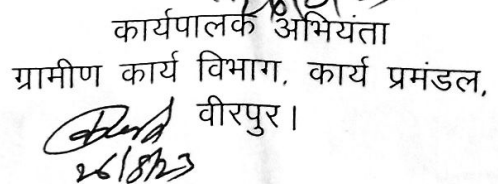 कार्यपालक अभियंता
ग्रामीण कार्य विभाग, कार्य प्रमंडल,
वीरपुर।
26/8/23